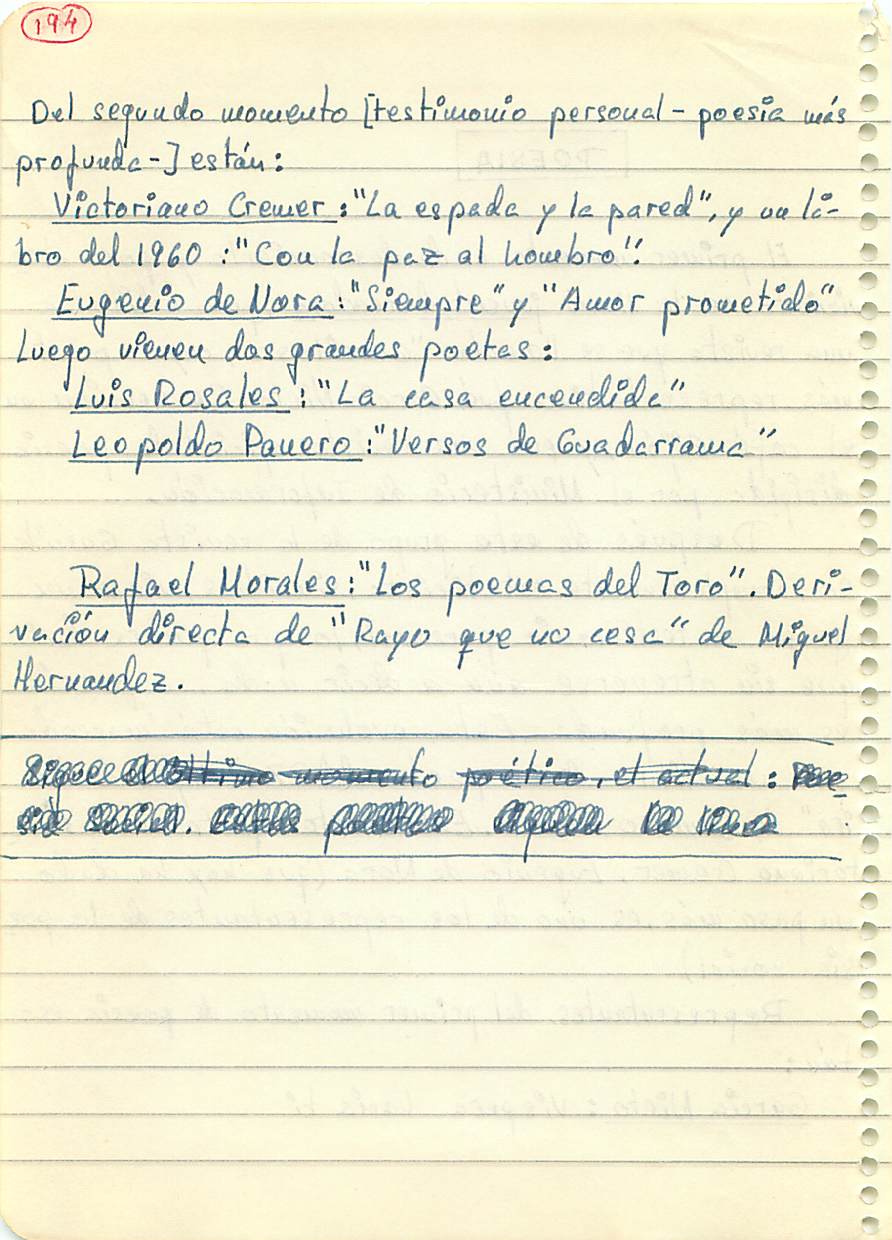 194
Del segundo momento [testimonio personal - poesía más
profunda-] están:
Victoriano Cremer: "La espada y la pared", y un li-
bro del 1960: "Con la paz al hombro".
Eugenio de Nora: "Siempre" y "Amor prometido"
Luego vienen dos grandes poetas:
Luis Rosales: "La casa encendida"
Leopoldo Panero: "Versos de Guadarrama"
Rafael Morales: "Los poemas del Toro". Deri-
vación directa de "Rayo que no cesa" de Miguel
Hernandez.
Sigue el último momento poético, el actual: Poe-
sía social. estos poetas siguen la línea